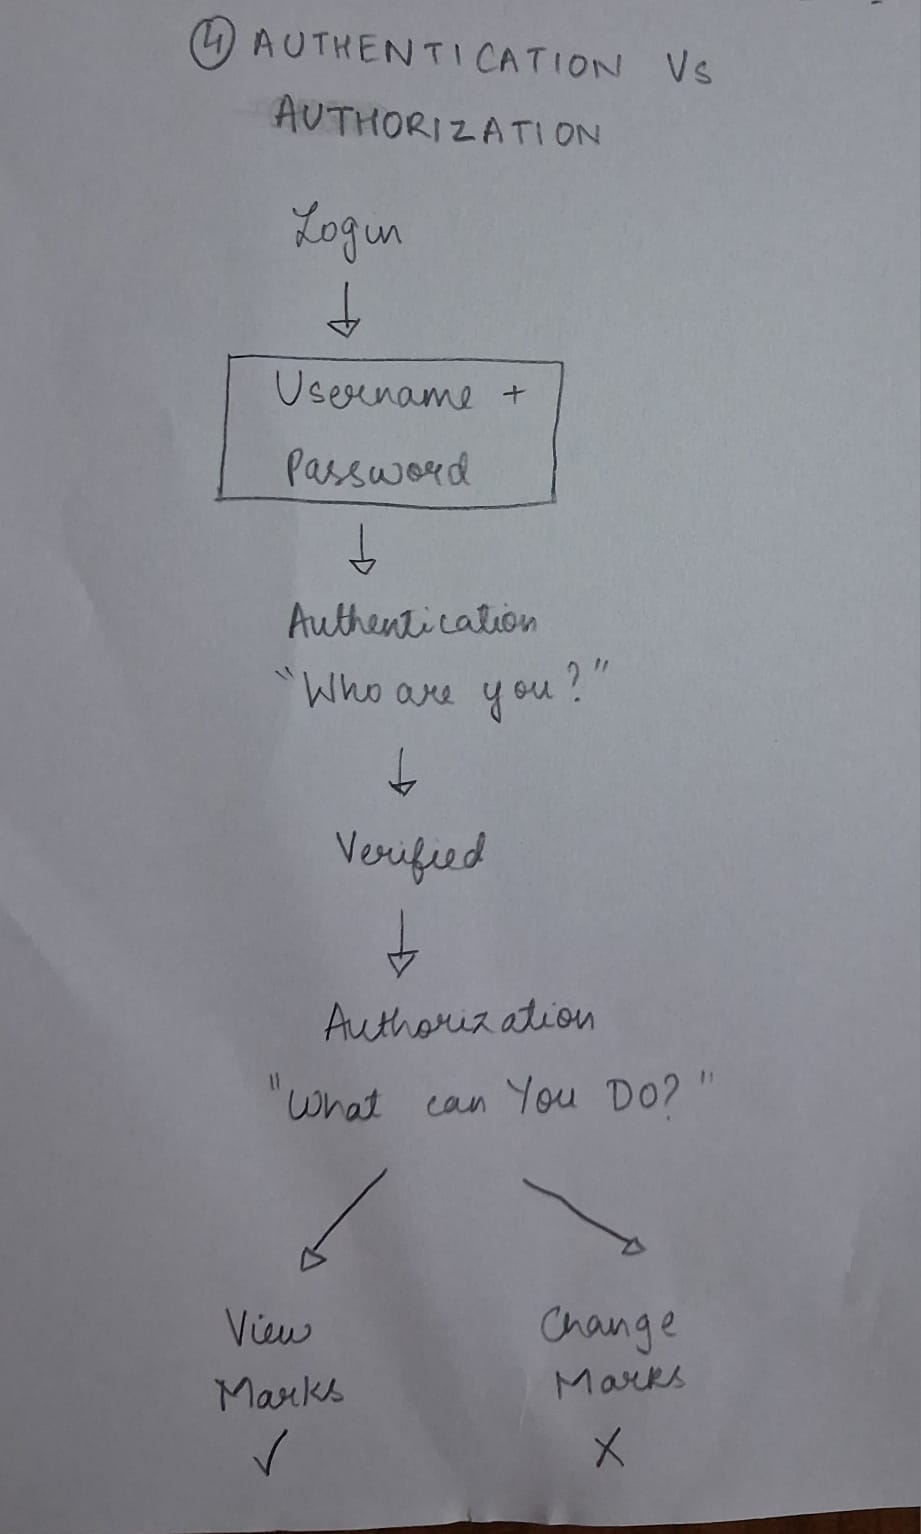 ④ AUTHENTICATION Vs
AUTHORIZATION
Login
↓
Username +
Password
↓
Authentication
"Who are you?"
↓
Verified
↓
Authorization
"What can You DO?"
View
Marks
✓
Change
Marks
X